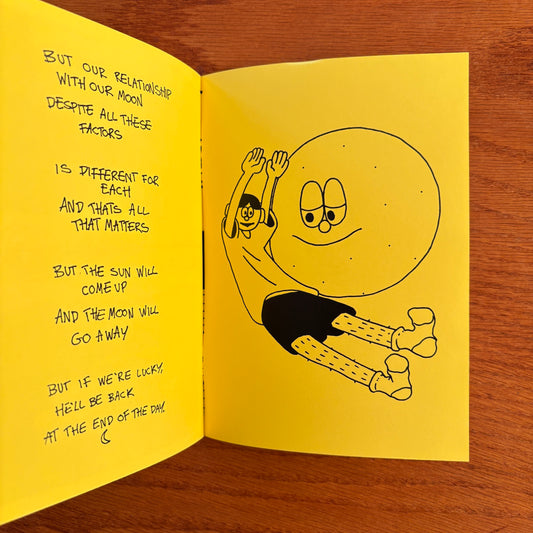 BUT OUR RELATIONSHIP
WITH OUR MOON
DESPITE ALL THESE
FACTORS
IS DIFFERENT FOR
EACH
AND THATS ALL
THAT MATTERS
BUT THE SUN WILL
COME UP
AND THE MOON WILL
GO AWAY
BUT IF WE'RE LUCKY,
HE'LL BE BACK
AT THE END OF THE DAY.